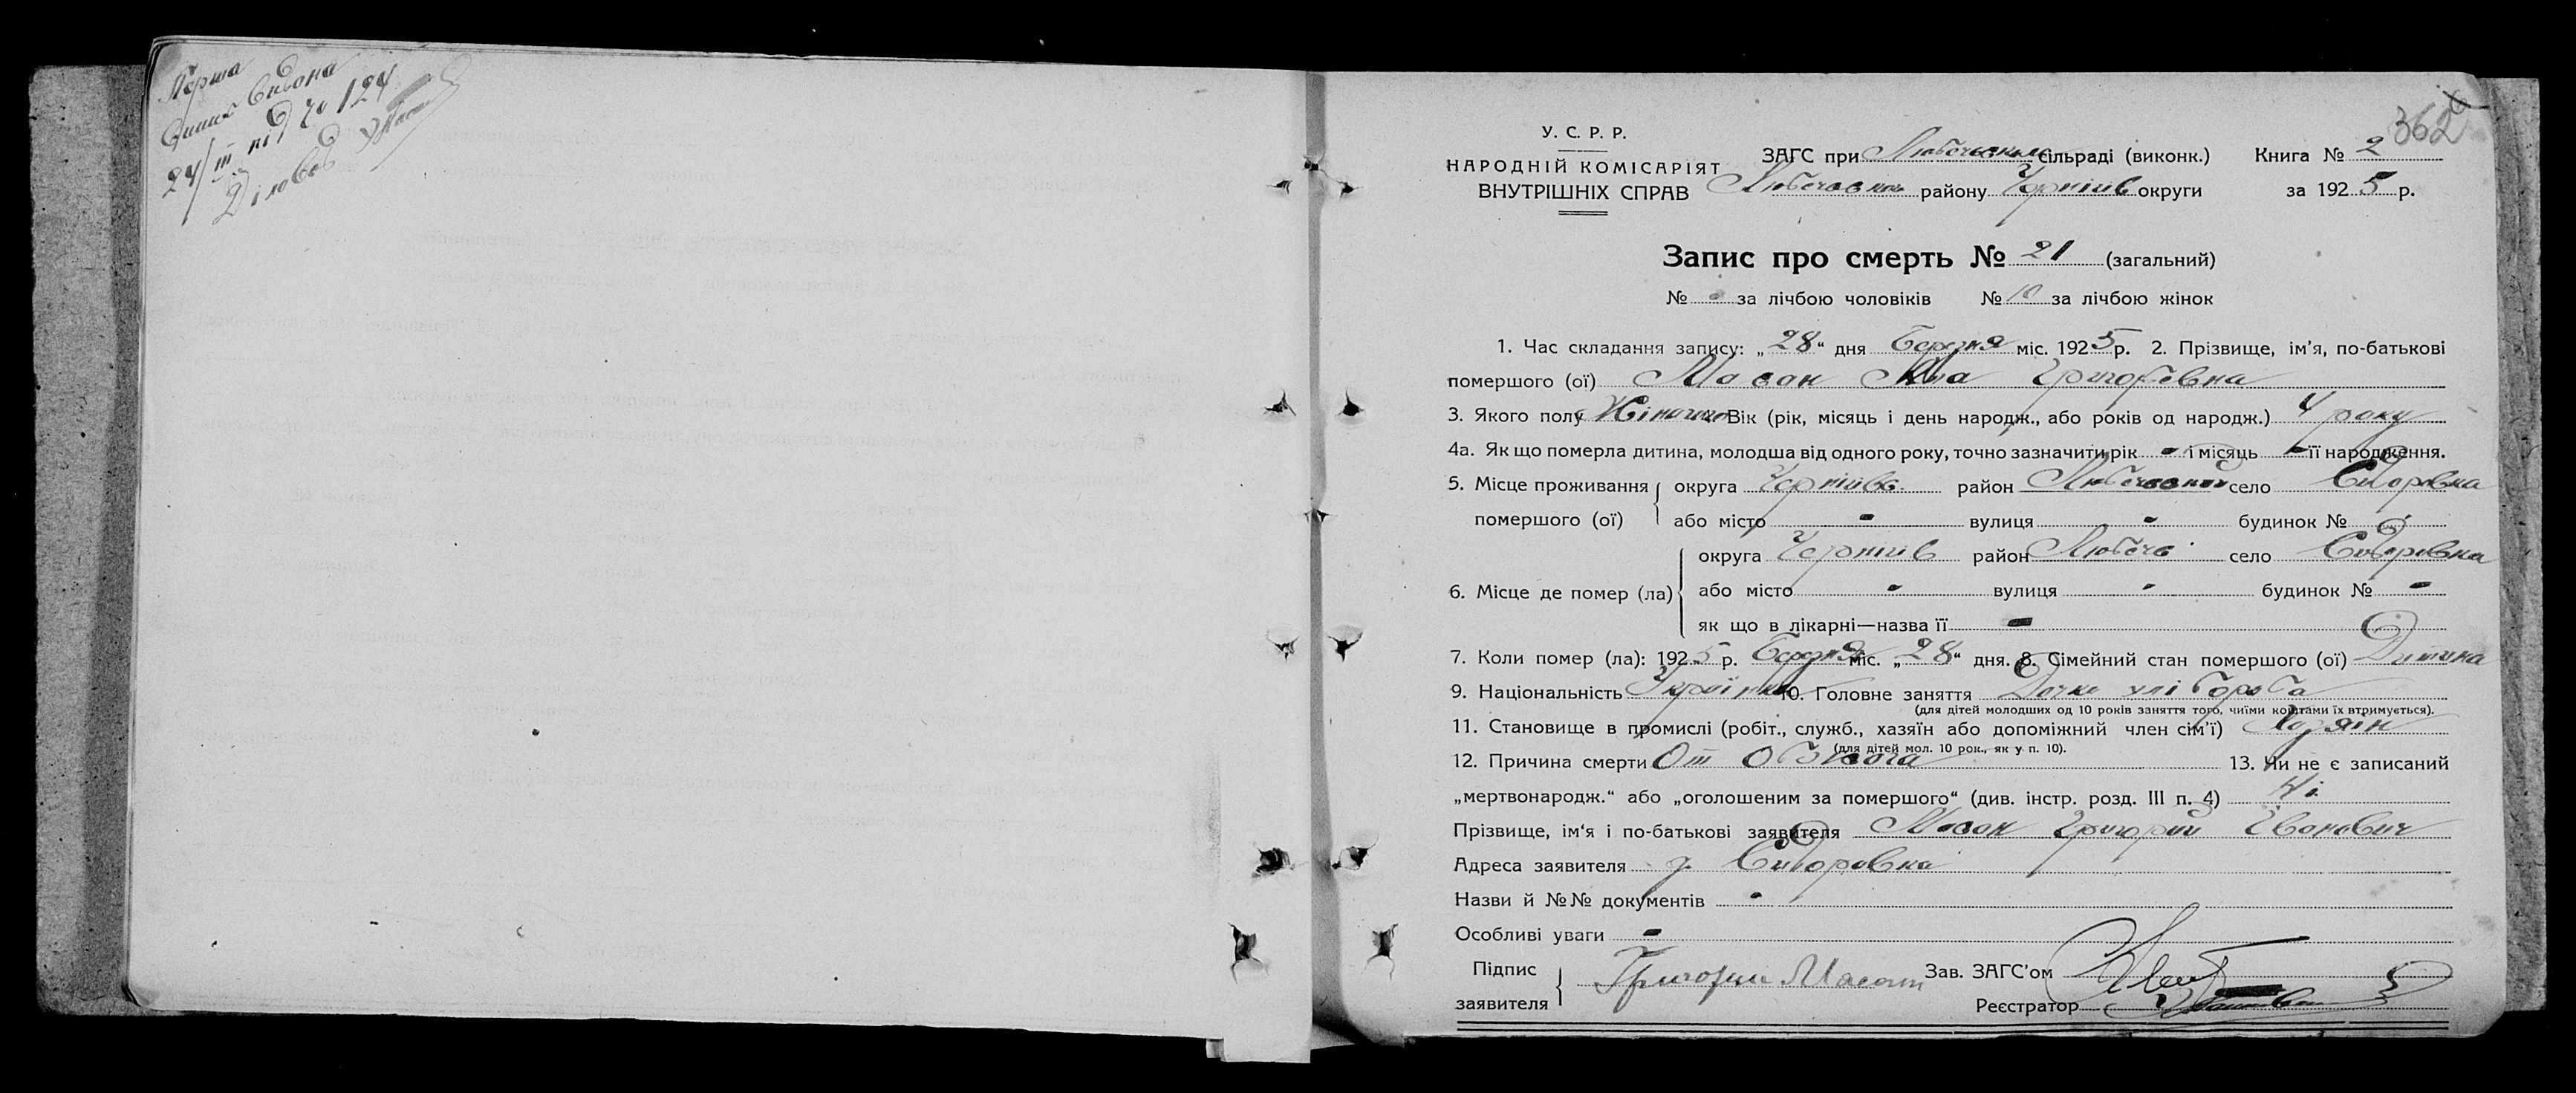 24/III під № 124
Діловод
362
У. С. Р. Р.
НАРОДНІЙ КОМІСАРІЯТ
ВНУТРІШНІХ СПРАВ
ЗАГС при сільраді (виконк.) Книга № 2
району Чернігів округи за 1925 р.
Запис про смерть № 21 (загальний)
№ за лічбою чоловіків № 10 за лічбою жінок
1. Час складання запису: „28“ дня Березня міс. 1925 р. 2. Прізвище, ім’я, по-батькові
помершого (ої) Масан Григоревна
3. Якого полу Жіночого 4. Вік (рік, місяць і день народж., або років од народж.) 4 року
4а. Як що померла дитина, молодша від одного року, точно зазначити рік - і місяць - її народження.
5. Місце проживання помершого (ої) округа район село Сидоровка
або місто - вулиця - будинок № -
6. Місце де помер (ла) округа Чернігів район Любеч село Сидоровка
або місто - вулиця - будинок № -
як що в лікарні—назва її -
7. Коли помер (ла): 1925 р. Березня міс. „28“ дня. 8. Сімейний стан помершого (ої) Дитина
9. Національність Українка 10. Головне заняття Дочка хлібороба
(для дітей молодших од 10 років заняття того, чиїми коштами їх втримується).
11. Становище в промислі (робіт., служб., хазяїн або допоміжний член сім’ї) Хазяін
(для дітей мол. 10 рок., як у п. 10).
12. Причина смерти От 13. Чи не є записаний
„мертвонародж.“ або „оголошеним за помершого“ (див. інстр. розд. III п. 4) Ні
Прізвище, ім‘я і по-батькові заявителя Масан Григорий Іванович
Адреса заявителя Сидоровка
Назви й №№ документів -
Особливі уваги -
Підпис заявителя Григорий Масан Зав. ЗАГС’ом
Реєстратор